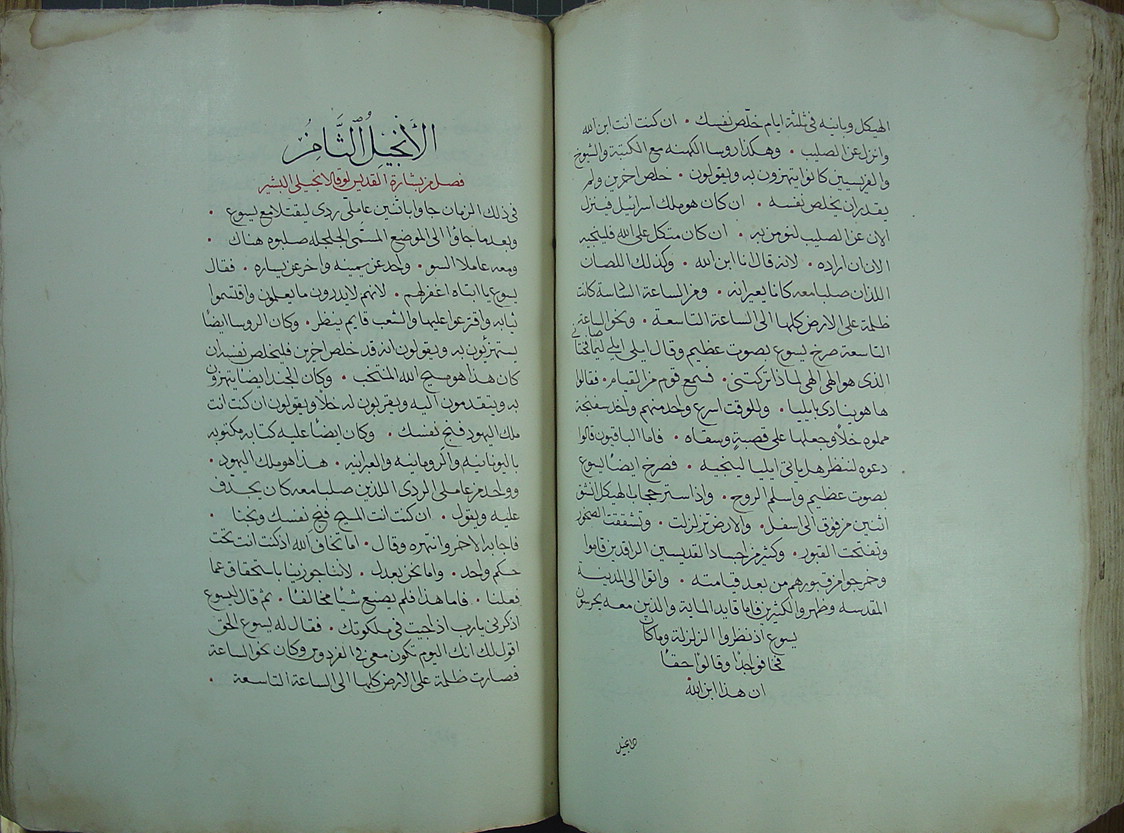 الهيكل وبانيه في ثلثة ايام خلّص نفسك . ان كنت انت ابن الله
وانزل عن الصليب . وهكذا روسا الكهنه مع الكتبة والشيوخ
والفريسيين كانوا يتهزون به ويقولون . خلص اخرين ولم
يقدر ان يخلص نفسه . ان كان هو ملك اسرائيل فينزل
الان عن الصليب لنومن به . ان كان متكل على الله فلينجيه
الان ان اراده . لانه قال انا ابن الله . وكذلك اللصان
اللذان صلبا معه كانا يعيرانه . ومن الساعة السادسة كانت
ظلمة على الارض كلها الى الساعة التاسعة . ونحو الساعة
التاسعة صرخ يسوع بصوت عظيم وقال ايلي ايلي
الذى هو الهي الهي لماذا تركتني . فسمع قوم من القيام . فقالوا
ها هو ينادى بايليا . وللوقت اسرع واحد منهم واخد سفنجة
مملوه خلا وجعلها على قصبة وسقاه . فاما الباقون قالوا
دعوه لننظر هل ياتى ايليا لينجيه . فصرخ ايضا يسوع
بصوت عظيم واسلم الروح . واذا ستر حجاب الهيكل انشق
اثنين من فوق الى اسفل . والارض تزلزلت . وتشققت الصخور
وتفتحت القبور . وكثير من اجساد القديسين الراقدين قاموا
وخرجوا من قبورهم من بعد قيامته . واتوا الى المدينة
المقدسه وظهروا لكثيرين فاما قايد الماية والذين معه يحرسون
يسوع اذ نظروا الزلزلة وما كان
فخافوا جدًا وقالوا حقًا
ان هذا ابن الله
الانجيل
الأنجيل الثامن
فصل من بشارة القديس لوقا الانجيلي البشير
في ذلك الزمان جاوا باثنين عاملي ردى ليقتلا مع يسوع .
وبعد ما جاوا الى الموضع المسمى الجلجله صلبوه هناك .
ومعه عاملا السو . واحد عن يمينه واخر عن يساره . فقال
يسوع يا ابتاه اغفر لهم . لانهم لا يدرون ما يعملون واقتسموا
ثيابه واقترعوا عليها والشعب قايم ينظر . وكان الروسا ايضًا
يستهزئون به ويقولون انه قد خلص اخرين فليخلص نفسه ان
كان هذا هو مسيح الله المنتخب . وكان الجند ايضا يتهزون
به ويتقدمون اليه ويقربون له خلا ويقولون ان كنت انت
ملك اليهود فنج نفسك . وكان ايضًا عليه كتابه مكتوبه
باليونانيه والرومانيه والعبرانيه . هذا هو ملك اليهود .
وواحد من عاملي الردى اللذين صلبا معه كان يجدف
عليه ويقول . ان كنت انت المسيح فنج نفسك ونجنا .
فاجابه الاخر وانتهره وقال . اما تخاف الله اذ كنت انت تحت
حكم واحد . واما نحن بعدل . لاننا جوزينا باستحقاق عما
فعلنا . فاما هذا فلم يصنع شيا مخالفًا . ثم قال ليسوع
اذكرني يارب اذا جيت في ملكوتك . فقال له يسوع الحق
اقول لك انك اليوم تكون معى في الفردوس وكان نحو الساعة
فصارت ظلمة على الارض كلها الى الساعة التاسعة .